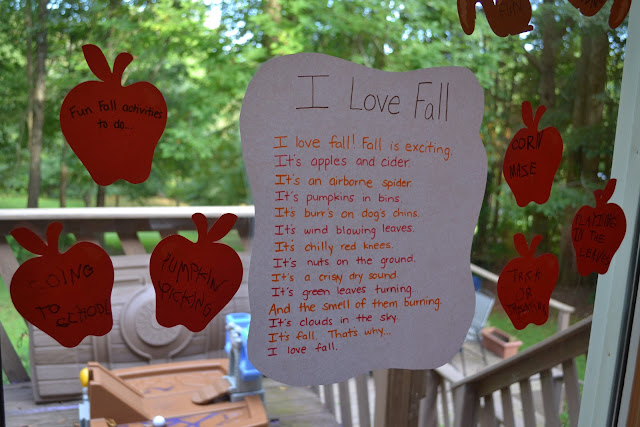 FUN
Fun Fall activities
to do...
GOING
TO SCHOOL
PUMPKIN
PICKING
I Love Fall
I love fall! Fall is exciting.
It's apples and cider.
It's an airborne spider.
It's pumpkins in bins.
It's burr's on dog's chins.
It's wind blowing leaves.
It's chilly red knees.
It's nuts on the ground.
It's a crispy dry sound.
It's green leaves turning.
And the smell of them burning.
It's clouds in the sky.
It's fall. That's why...
I love fall.
CORN
MASE
PLAYING
IN THE
LEAVES
TRICK
OR
TREATING